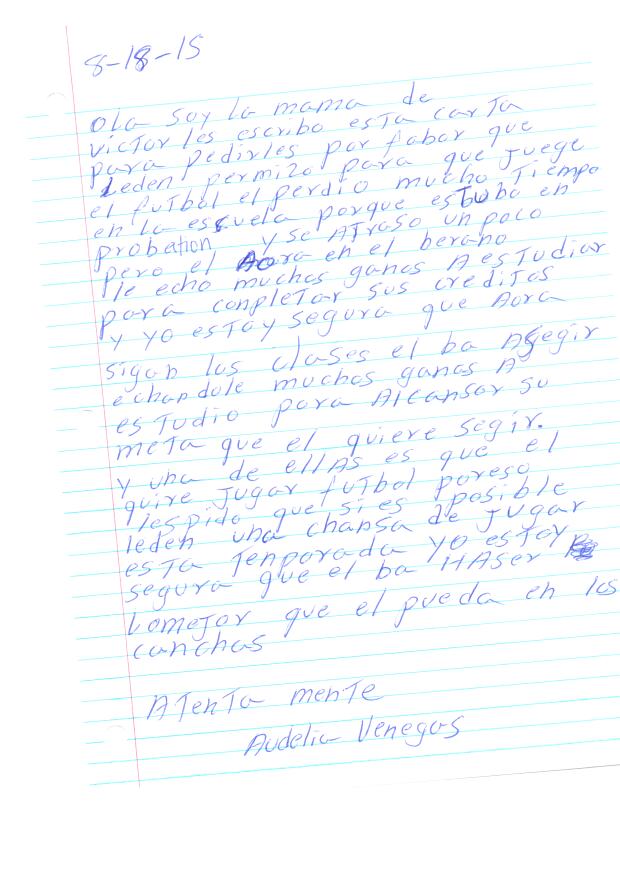 8-18-15
Ola Soy la mama de
victor les escribo esta carta
para pedirles por fabor que
Leden permizo para que juege
el futbol el perdio mucho tiempo
en la escuela porque estubo en
probation y se Atraso un poco
pero el Aora en el berano
le echo muchas ganas A estudiar
para conpletar sus creditos
y yo estoy segura que Aora
sigan las clases el ba Asegir
echandole muchas ganas A
estudio para Alcansar su
meta que el quiere segir.
y una de ellas es que el
quire jugar futbol poreso
lespido que si es posible
leden una chansa de jugar
esta tenporada yo estoy
segura que el ba HAser
Lomejor que el pueda en las
canchas
Atenta mente
Audelia Venegas